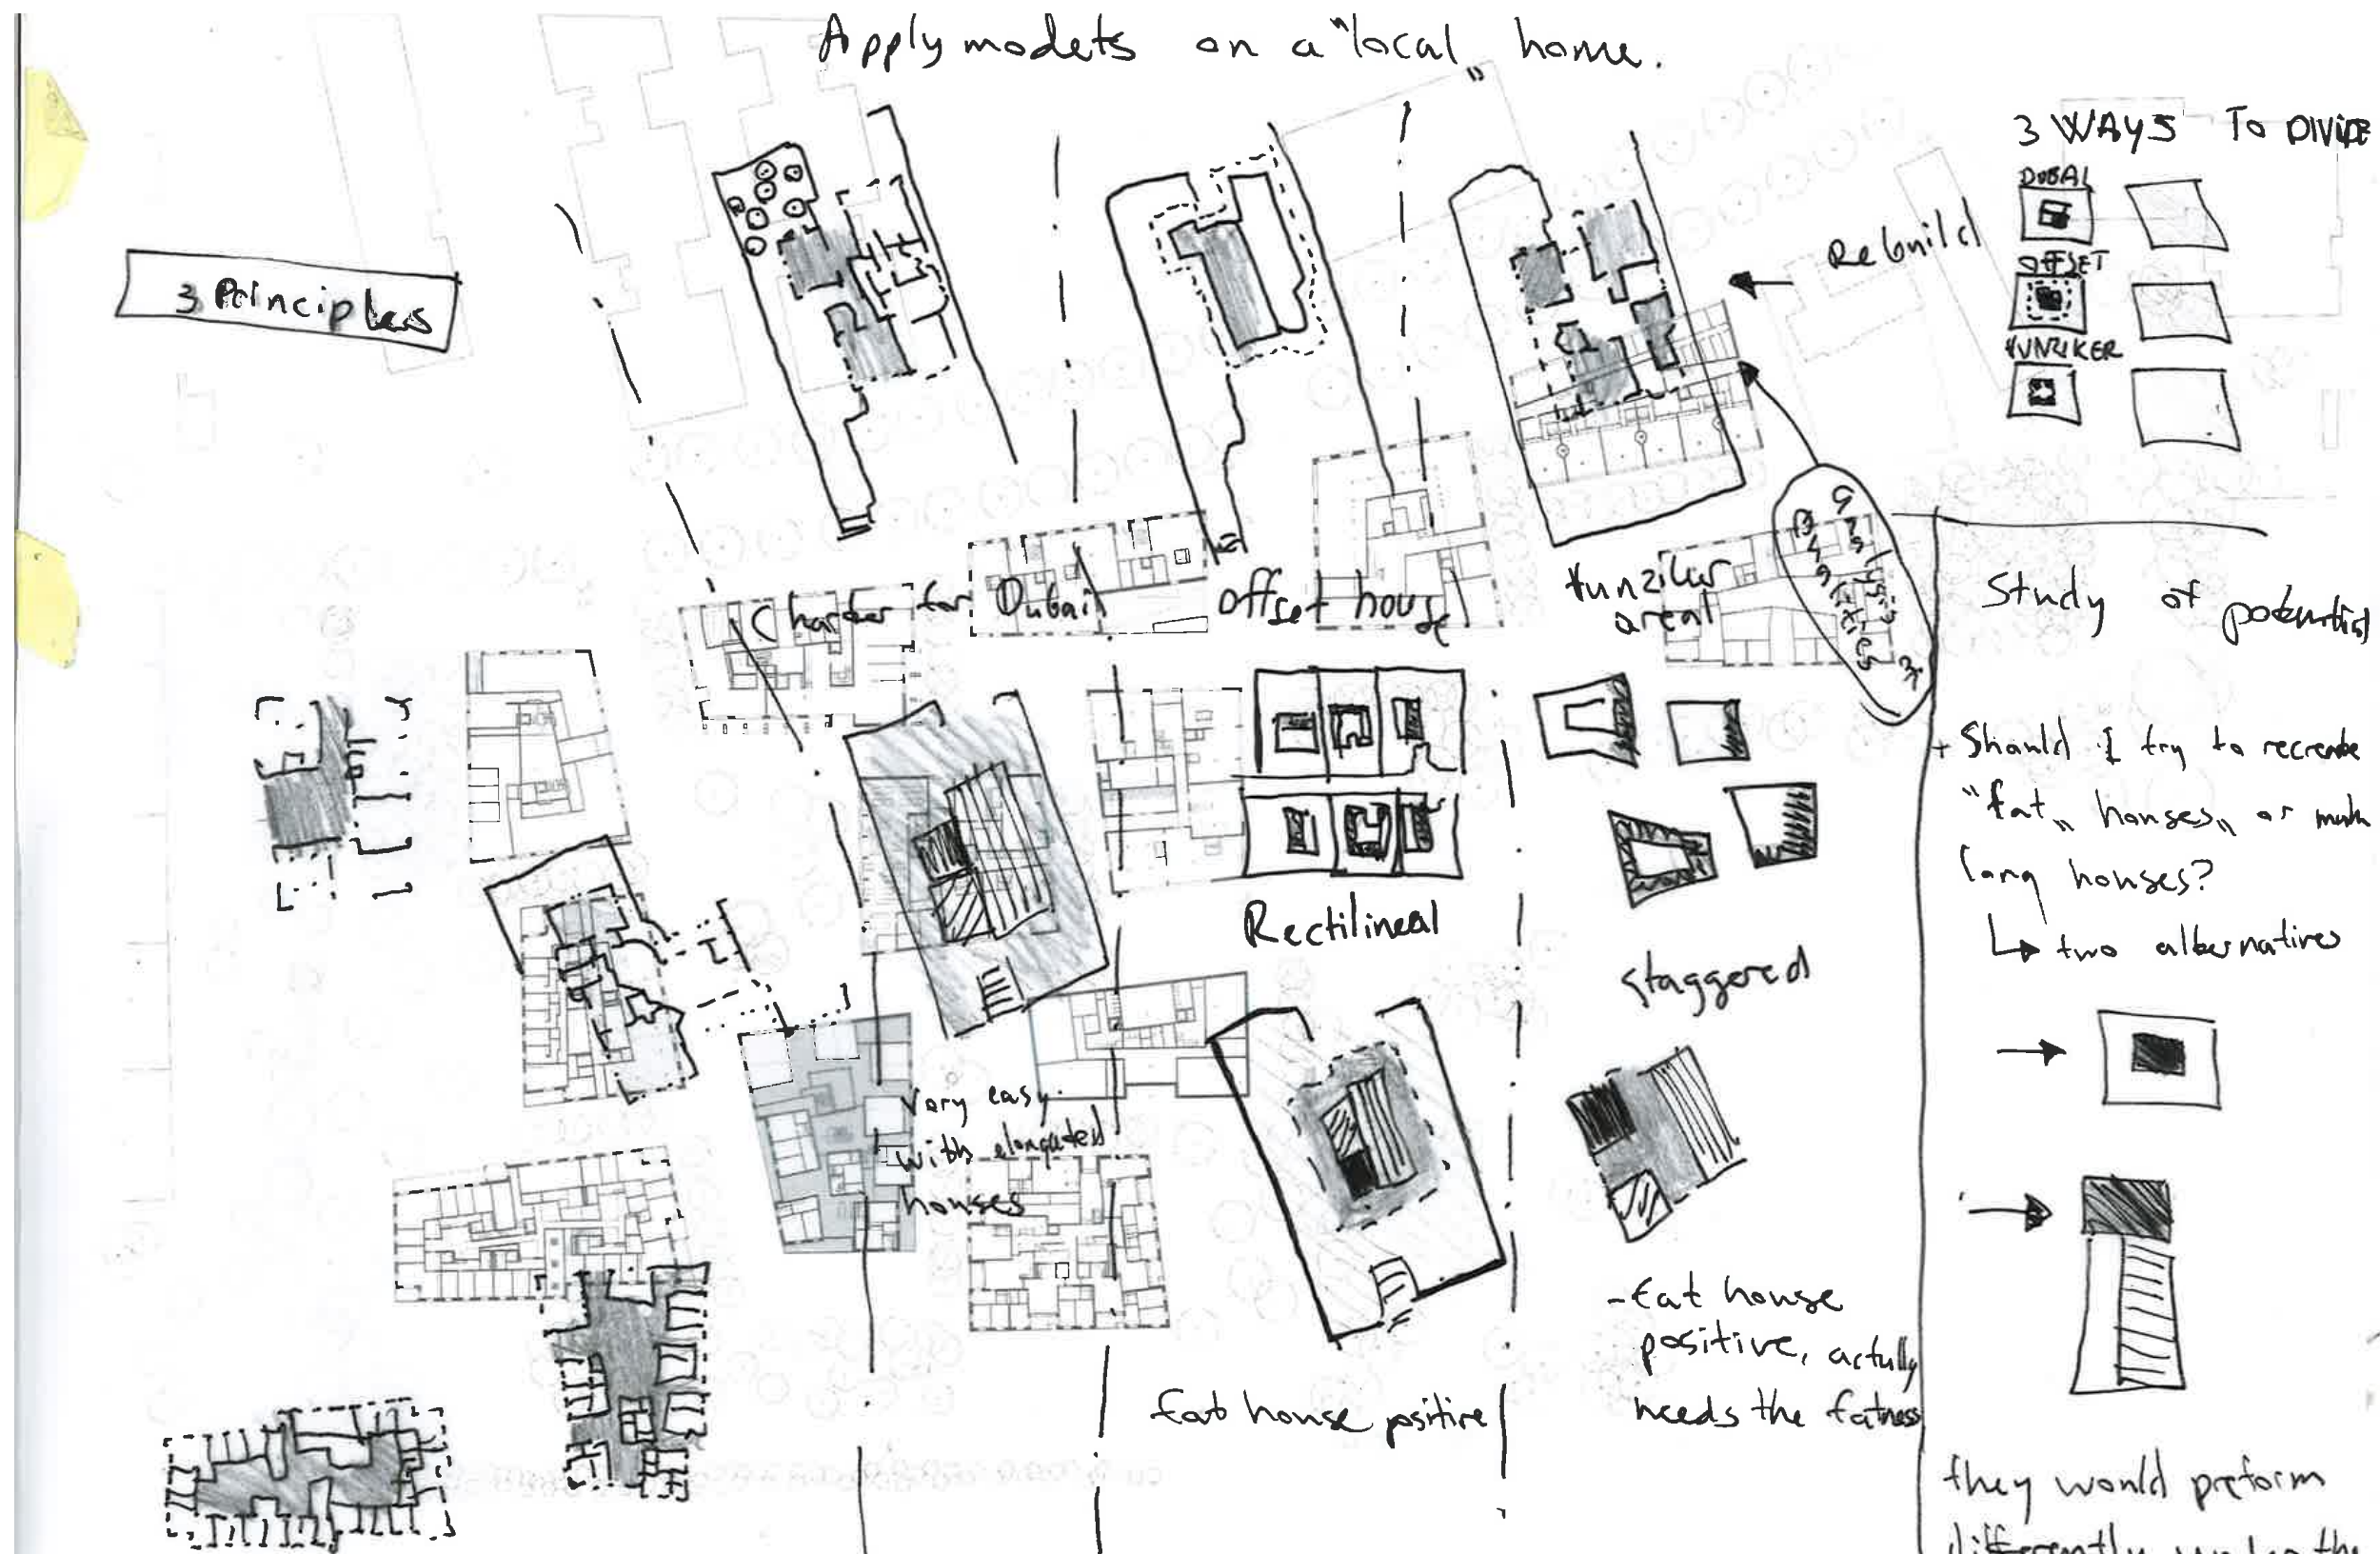 Apply models on a "local" home.
3 WAYS TO DIVIDE
DUBAI
OFFSET
HUNZIKER
3 Principles
Rebuild
Analysis 3x
Qualities
Charter for Dubai
offset house
Hunziker
areal
Study of potential
+ Should I try to recreate
"fat" houses" or make
long houses?
↳ two alternatives
Rectilineal
staggered
Very easy
with elongated
houses
fat house positive
- fat house
positive, actully
needs the fatness
they would preform
differently under the